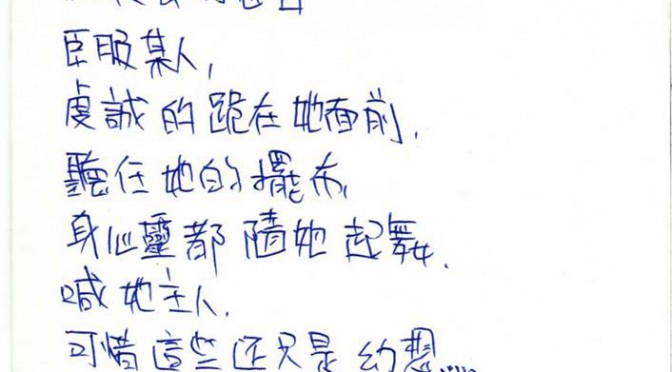 臣服某人,
虔誠的跪在她面前,
聽任她的擺布,
身心靈都隨她起舞.
喊她主人.
可惜這些还只是幻想....